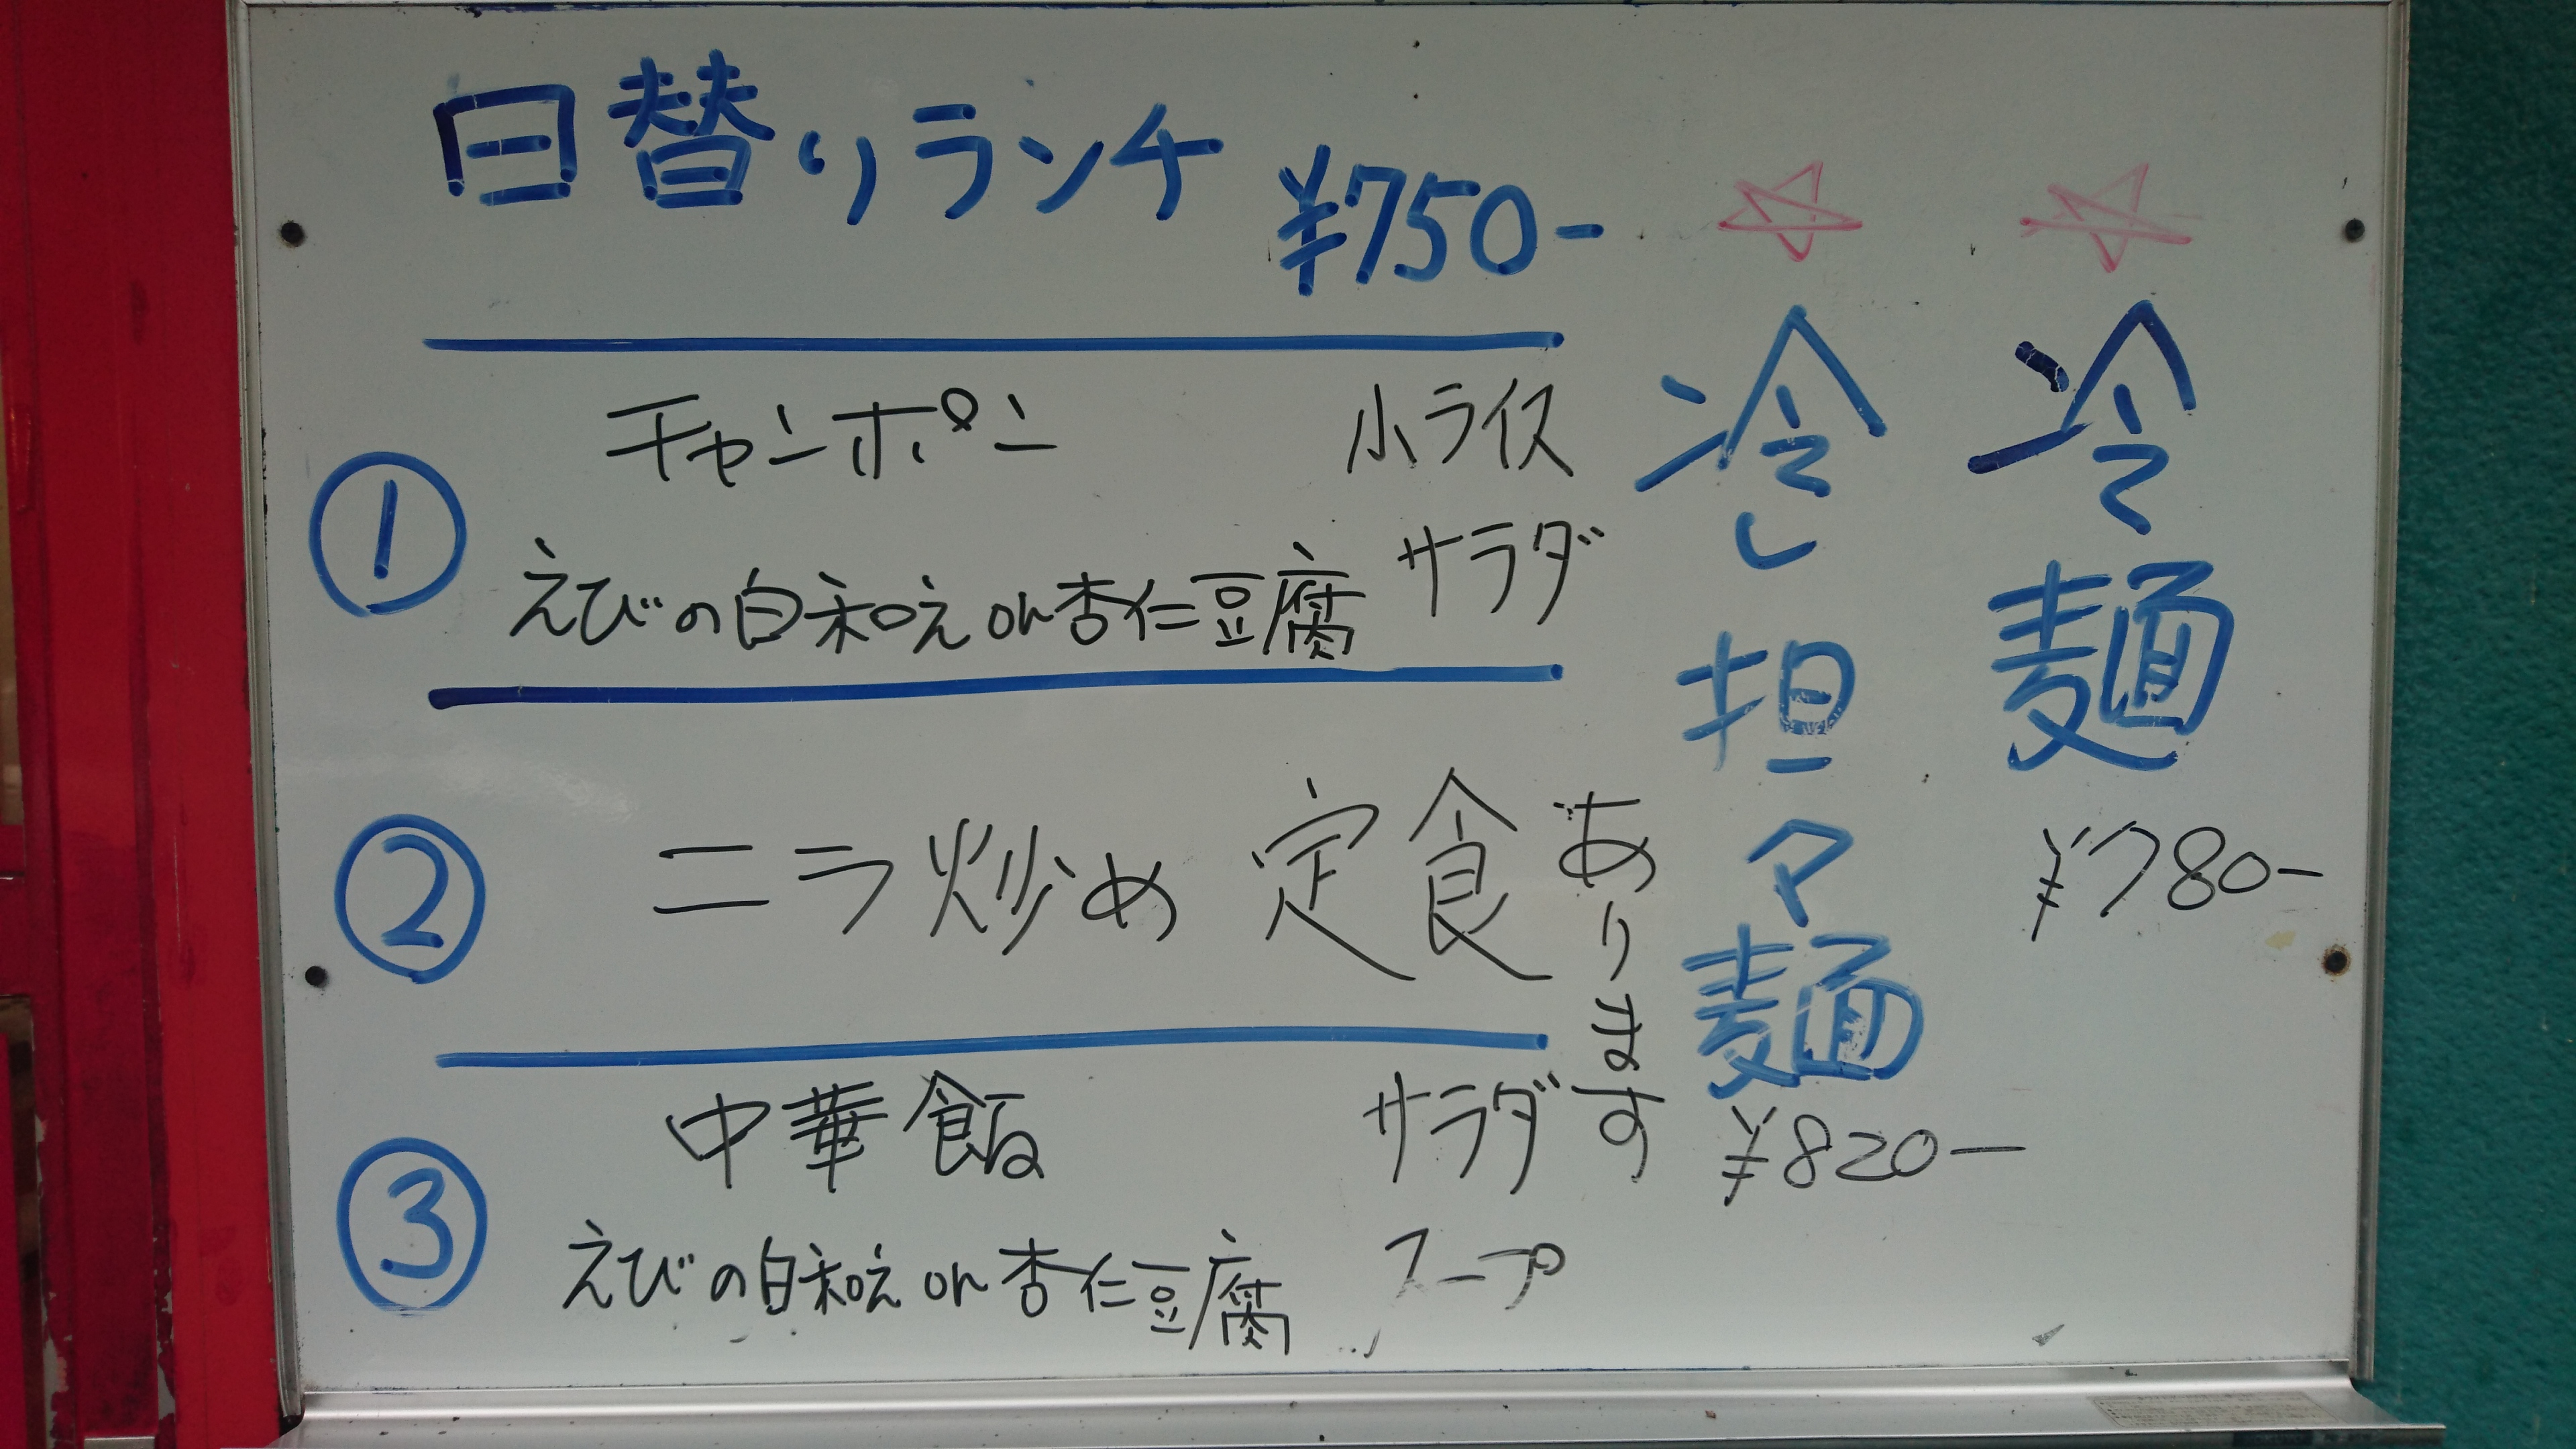 日替りランチ ¥750-
① チャンポン 小ライス
えびの白和え or 杏仁豆腐 サラダ
② ニラ炒め 定食
③ 中華飯 サラダ
えびの白和え or 杏仁豆腐 スープ
あります
☆冷し担々麺
¥820-
☆冷麺
¥780-